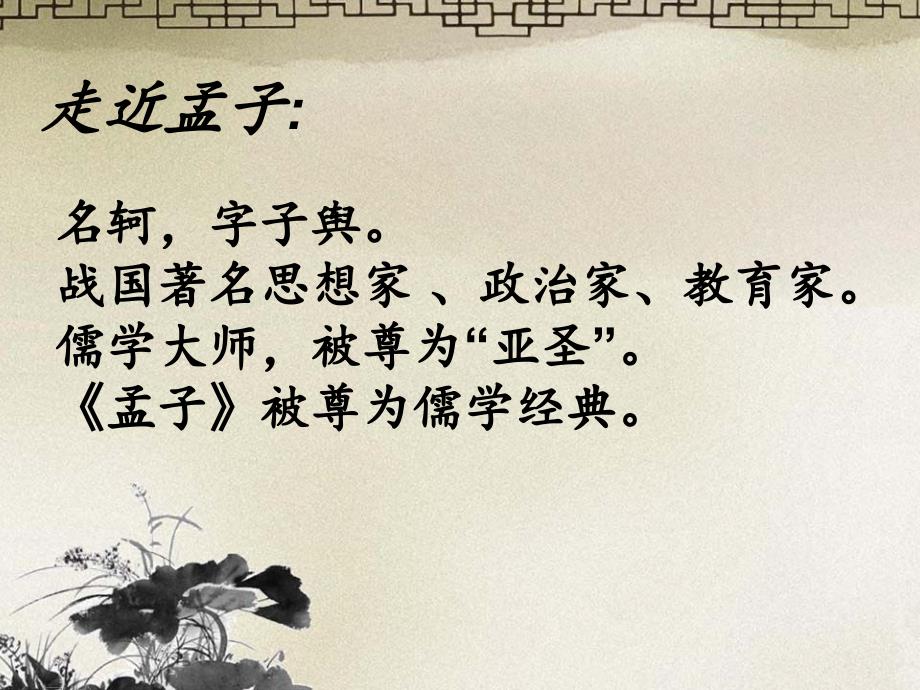 走近孟子:
名轲，字子舆。
战国著名思想家 、政治家、教育家。
儒学大师，被尊为“亚圣”。
《孟子》被尊为儒学经典。